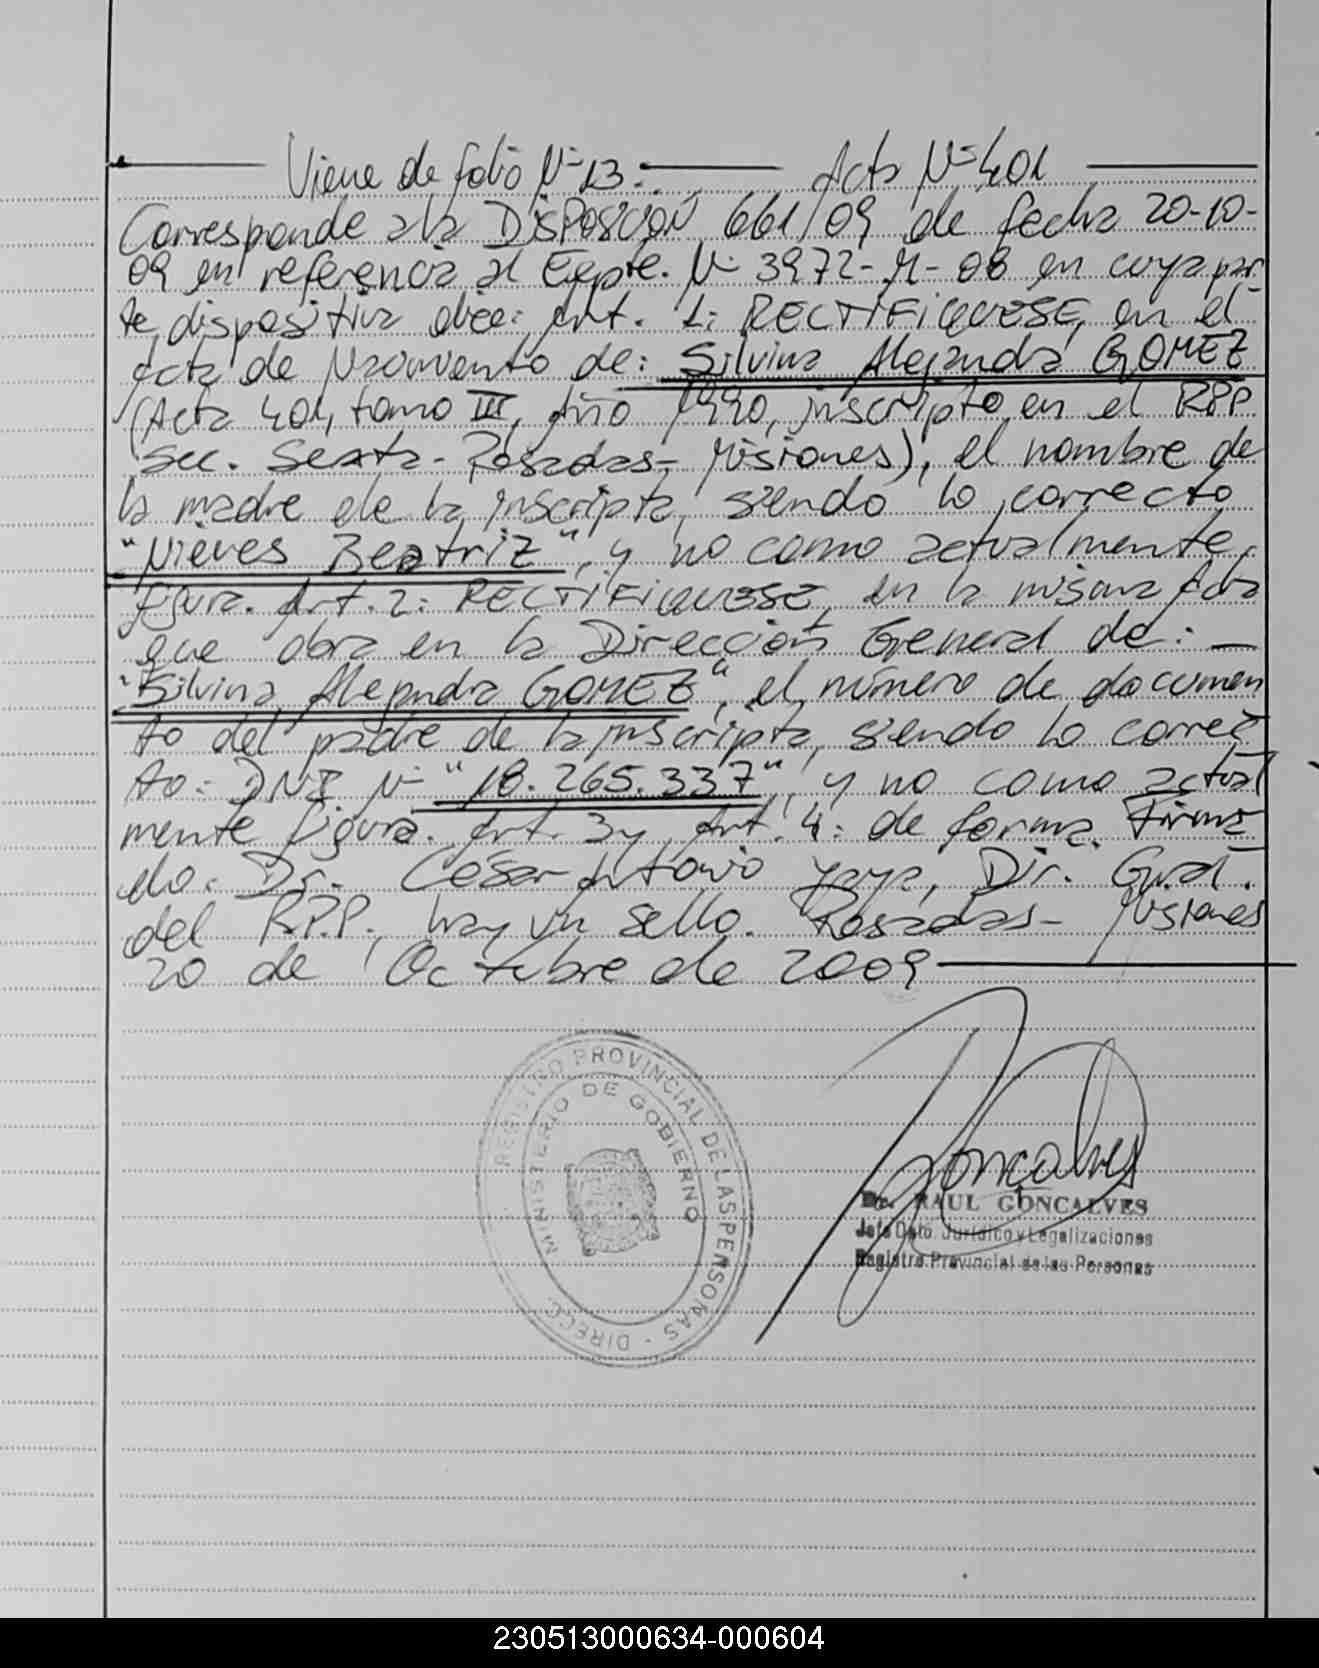 Viene de folio Nº 13. Acta Nº 401
Corresponde a la DISPOSICIÓN 661/09 de fecha 20-10-
09 en referencia al Expte. Nº 3972-M-08 en cuya par
te dispositiva dice: Art. 1: RECTIFIQUESE, en el
Acta de Nacimiento de: Silvina Alejandra GOMEZ
(Acta 401, tomo III, Año 1990, inscripto en el RPP
Sec. Sexta- Posadas- Misiones), el nombre de
la madre de la inscripta, siendo lo correcto
"Nieves Beatriz", y no como actualmente
figura. Art. 2: RECTIFIQUESE, en la misma Acta
que obra en la Dirección General de:
"Silvina Alejandra GOMEZ", el número de documen
to del padre de la inscripta, siendo lo correc
to: DNI Nº "18.265.337", y no como actual
mente figura. Art. 3 y Art. 4: de forma. Firma
do. Dr. César Antonio Yaya, Dir. Gral.
del R.P.P. hay un sello. Posadas- Misiones
20 de Octubre de 2009
REGISTRO PROVINCIAL DE LAS PERSONAS - DIRECC.
MINISTERIO DE GOBIERNO
Gonçalves
Dr. RAUL GONCALVES
Jefe Dpto. Jurídico y Legalizaciones
Registro Provincial de las Personas
230513000634-000604